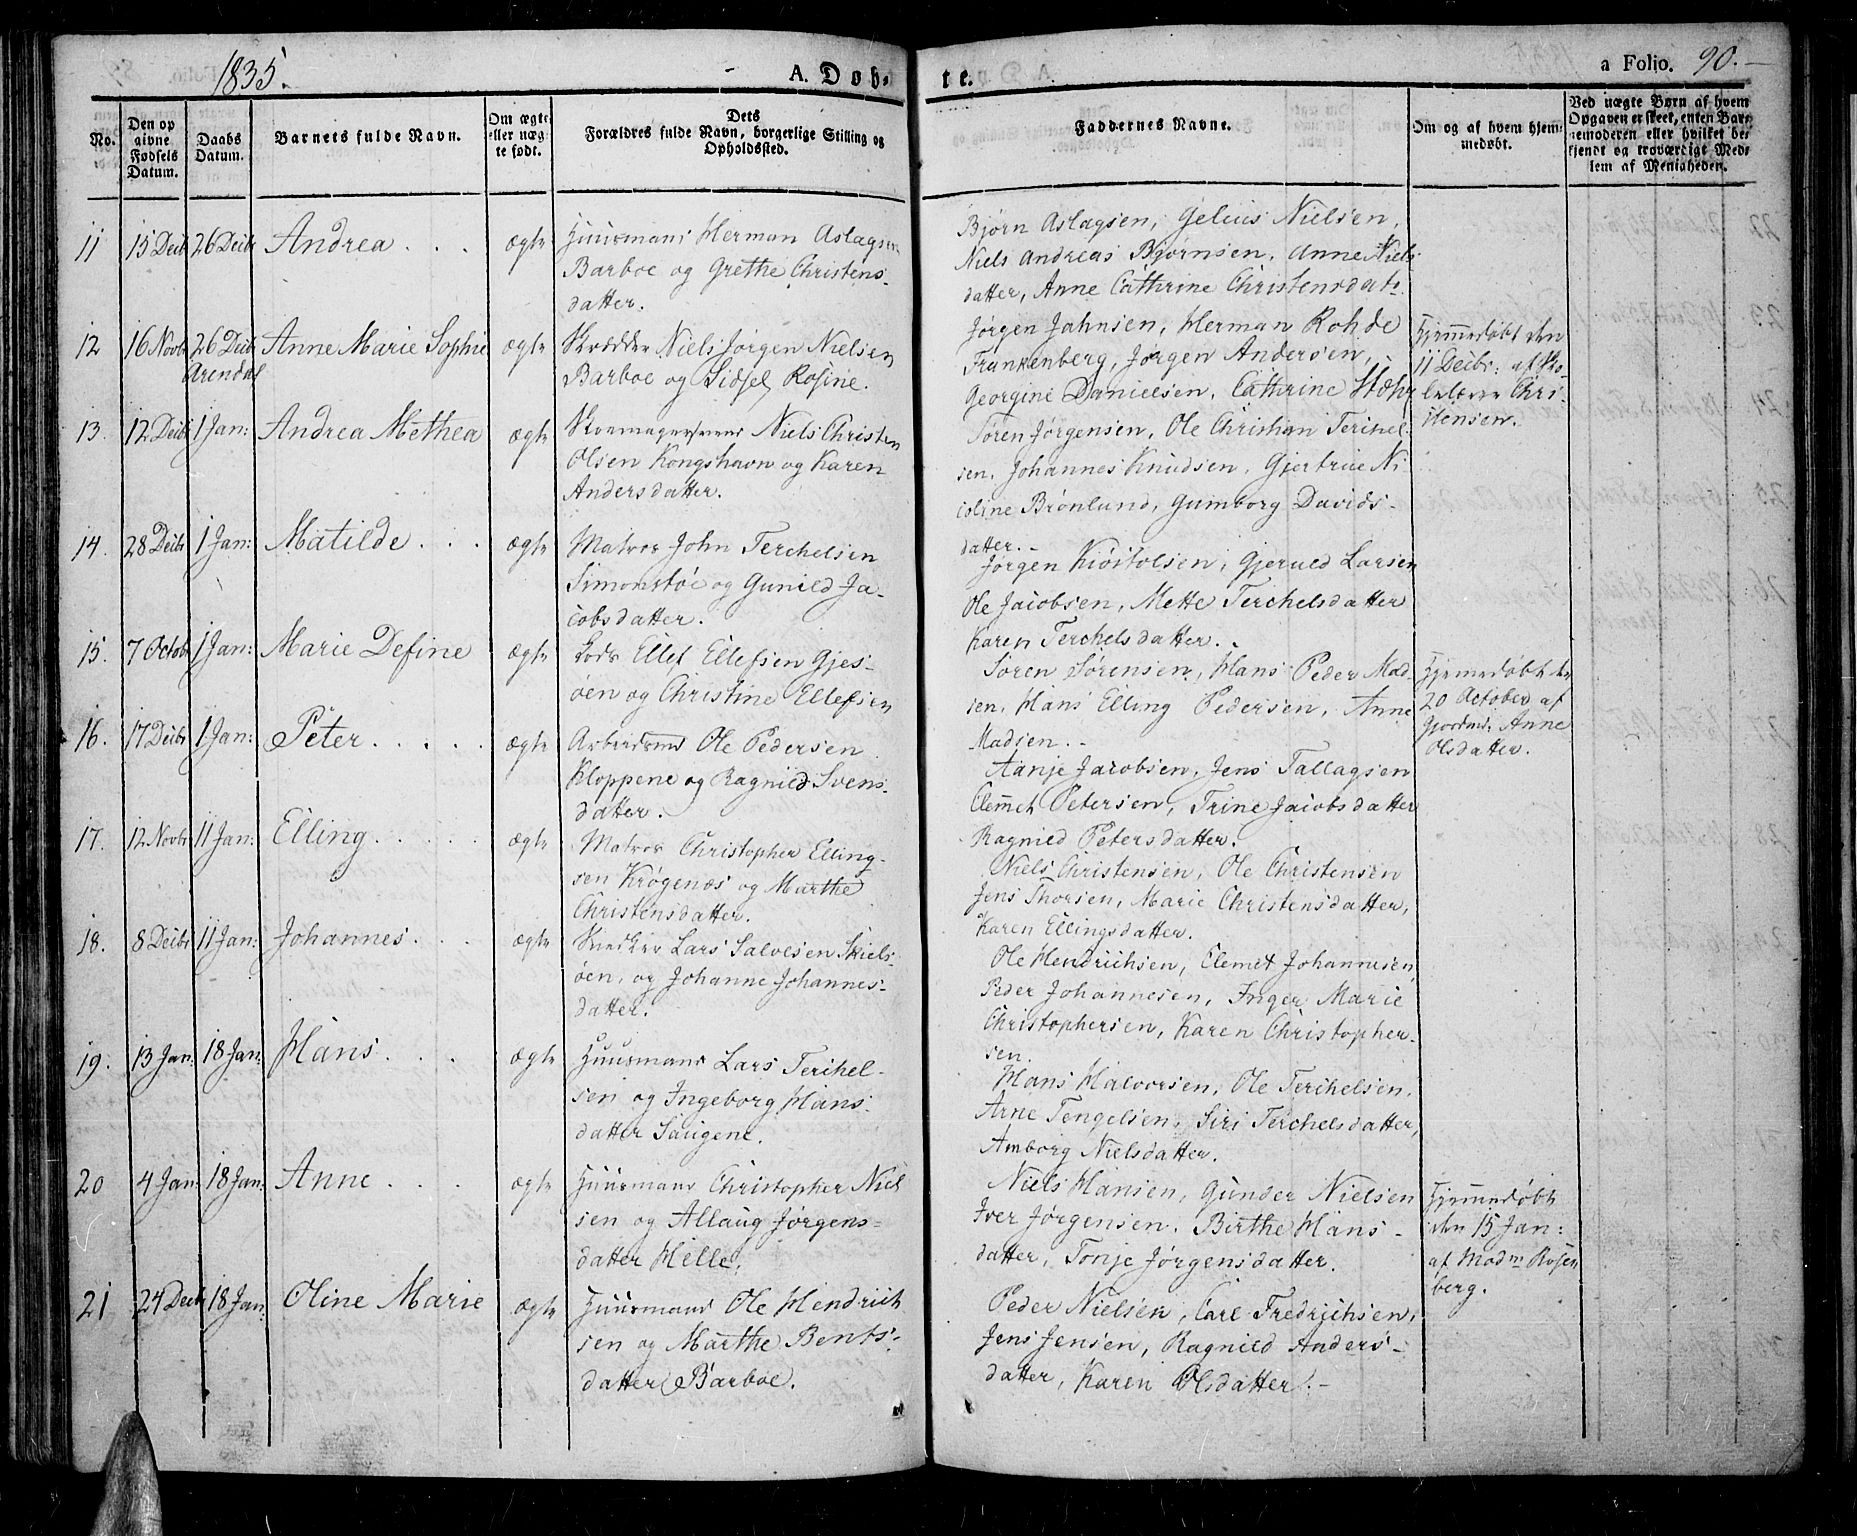 1835.
A. Døb-
te.
a Folio. 90.
No.
Den op
givne
Fødsels
Datum.
Daabs
Datum.
Barnets fulde Navn.
Om ægte
eller uæg
te født.
Dets
Forældres fulde Navn, borgerlige Stilling og
Opholdssted.
Faddernes Navne.
Om og af hvem hjem-
medøbt.
Ved uægte Børn af hvem
Opgaven er skeet, enten Bar-
nemoderen eller hvilket be
kjendt og troværdigt Med-
lem af Menigheden.
11 15 Decbr 26 Decbr Andrea ægte
Huusmand Herman Aslagsen
Barboe og Grethe Christens-
datter.
Bjørn Aslagsen, Gelius Nielsen,
Niels Andreas Bjørnsen, Anne Niels
datter, Anne Cathrine Christensdatr
12 16 Novbr 26 Decbr Anne Marie Sophie ægte
Arendal
Skrædder Niels Jørgen Nielsen
Barboe og Sidsel Rosine.
Jørgen Jahnsen, Herman Rohde
Frankenberg, Jørgen Andersen,
Georgine Danielsen, Cathrine Stæhr
Hjemmedøbt den
11 Decbr: af Sko-
lelærer Chri-
stensen.
13. 12 Decbr 1 Jan: Andrea Methea ægte
Skomagersvend Niels Christen
Olsen Kongshavn og Karen
Andersdatter.
Søren Jørgensen, Ole Christian Terchel-
sen, Johannes Knudsen, Gjertrue Ni
coline Brønlund, Gumborg Davids-
datter.-
14. 28 Decbr 1 Jan: Matilde ægte
Matros John Terchelsen
Simonstøe og Gunild Ja-
cobsdatter.
Jørgen Kiøstolsen, Gjeruld Larsen
Ole Jacobsen, Mette Terchelsdatter
Karen Terchelsdatter.
15. 7 Octobr 1 Jan: Marie Define ægte
Lods Ellef Ellefsen Gjes-
øen og Christine Ellefsen
Søren Sørensen, Hans Peder Mad-
sen, Hans Elling Pedersen, Anne
Madsen.-
Hjemmedøbt den
20 October af
Gjordmd: Anne
Olsdatter.
16. 17 Decbr 1 Jan: Peter ægte
Arbeidsmd Ole Pedersen
Kloppene og Ragnild Svens-
datter.
Aanje Jacobsen, Jens Tallagsen
Clemet Petersen, Trine Jacobsdatter
Ragnild Petersdatter.
17. 12 Novbr 11 Jan: Elling ægte
Matros Christopher Elling-
sen Krøgenæs og Marthe
Christensdatter.
Niels Christensen, Ole Christensen
Jens Thorsen, Marie Christensdatter,
Karen Ellingsdatter.
18. 8 Decbr 11 Jan: Johannes ægte
Snedker Lars Salvesen Skiels-
øen, og Johanne Johannes-
datter.
Ole Hendrichsen, Clemet Johannesen,
Peder Johannesen, Inger Marie
Christophersen, Karen Christopher-
sen.
19. 13 Jan: 18 Jan: Hans ægte
Huusmand Lars Terchel-
sen og Ingeborg Hans-
datter Saugene.
Hans Halvorsen, Ole Terchelsen,
Arne Tengelsen, Siri Terchelsdatter,
Amborg Nielsdatter.
20 4 Jan: 18 Jan: Anne ægte
Huusmand Christopher Niel
sen og Allaug Jørgens-
datter Helle.
Niels Hansen, Gunder Nielsen
Iver Jørgensen, Birthe Hans-
datter, Tonje Jørgensdatter.
Hjemmedøbt
den 15 Jan:
af Madm Rosen
berg.
21 24 Decbr 18 Jan: Oline Marie ægte
Huusmand Ole Hendrich
sen og Marthe Bents-
datter Barboe.
Peder Nielsen, Carl Fredrichsen,
Jens Jensen, Ragnild Anders-
datter, Karen Olsdatter.-